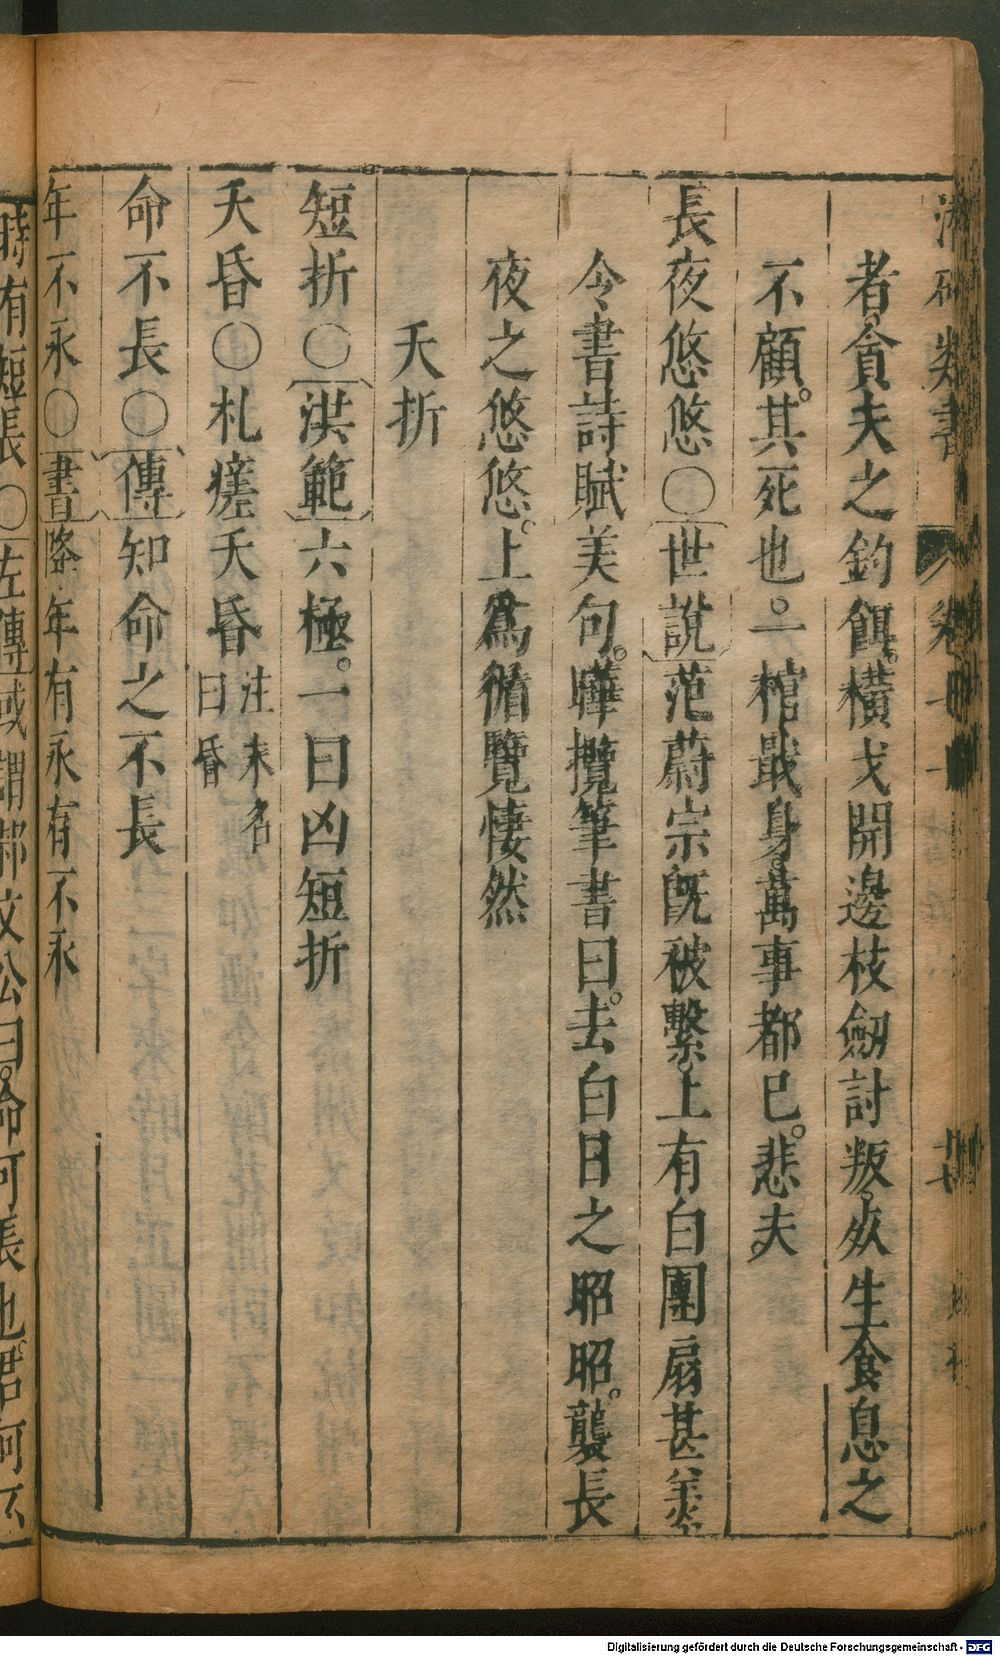 類書 卷 十七
者。貪夫之釣餌。橫戈開邊枝劒討叛。死生食息之
不顧。其死也。一棺戢身。萬事都已。悲夫
長夜悠悠○世說范蔚宗旣被繫。上有白團扇甚美
令書詩賦美句。曄攬筆書曰。去白日之昭昭。襲長
夜之悠悠。上爲循覽悽然
夭折
短折○洪範六極。一曰凶短折
夭昏○札瘥夭昏注未名曰昏
命不長○傳知命之不長
年不永○書降年有永有不永
時有短長○左傳或謂邾文公曰。命可長也。君何不
Digitalisierung gefördert durch die Deutsche Forschungsgemeinschaft - DFG